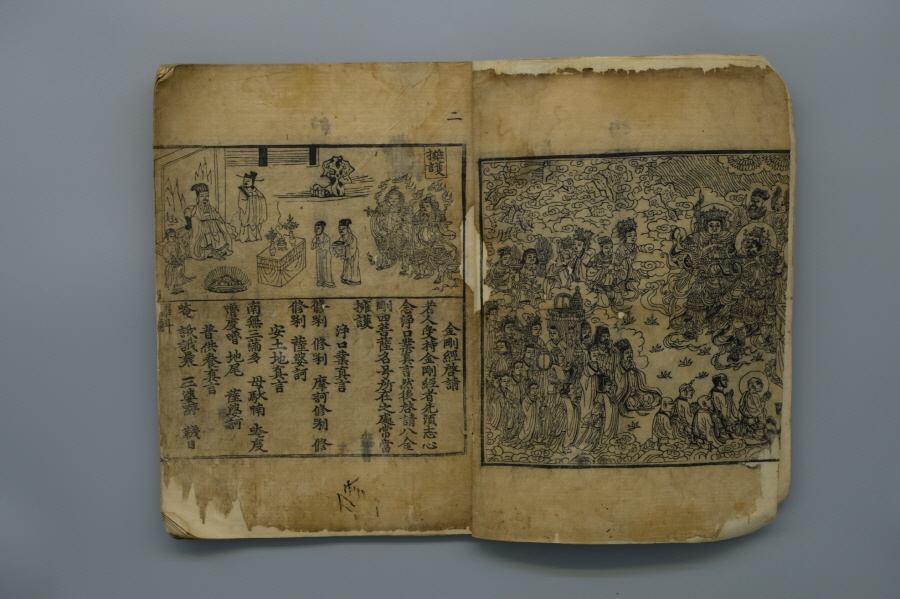 二
擁護
金剛經啓請
若人受持金剛經者先須志心
念淨口業真言然後啓請八金
剛四菩薩名号所在之處常當
擁護
淨口業真言
修唎 修唎 摩訶修唎 修
修唎 薩婆訶
安土地真言
南無三滿多 母馱喃 唵度
嚕度嚕 地尾 薩婆訶
普供養真言
唵 誐誐曩 三婆嚩 韈日